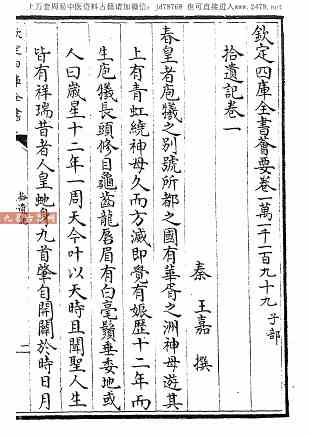 上万套周易中医资料古籍请加微信: jd78769 也可直接进入www.2478.net
欽定四庫全書薈要卷一萬一千一百九十九 子部
拾遺記卷一
秦 王嘉 撰
春皇者庖犧之別號所都之國有華胥之洲神母遊其
上有青虹繞神母久而方滅即覺有娠歷十二年而
生庖犧長頭修目龜齒龍唇眉有白毫鬚垂委地或
人曰歲星十二年一周天今叶以天時且聞聖人生
皆有祥瑞昔者人皇虵身九首肇自開闢於時日月
定四庫全書
拾遺記